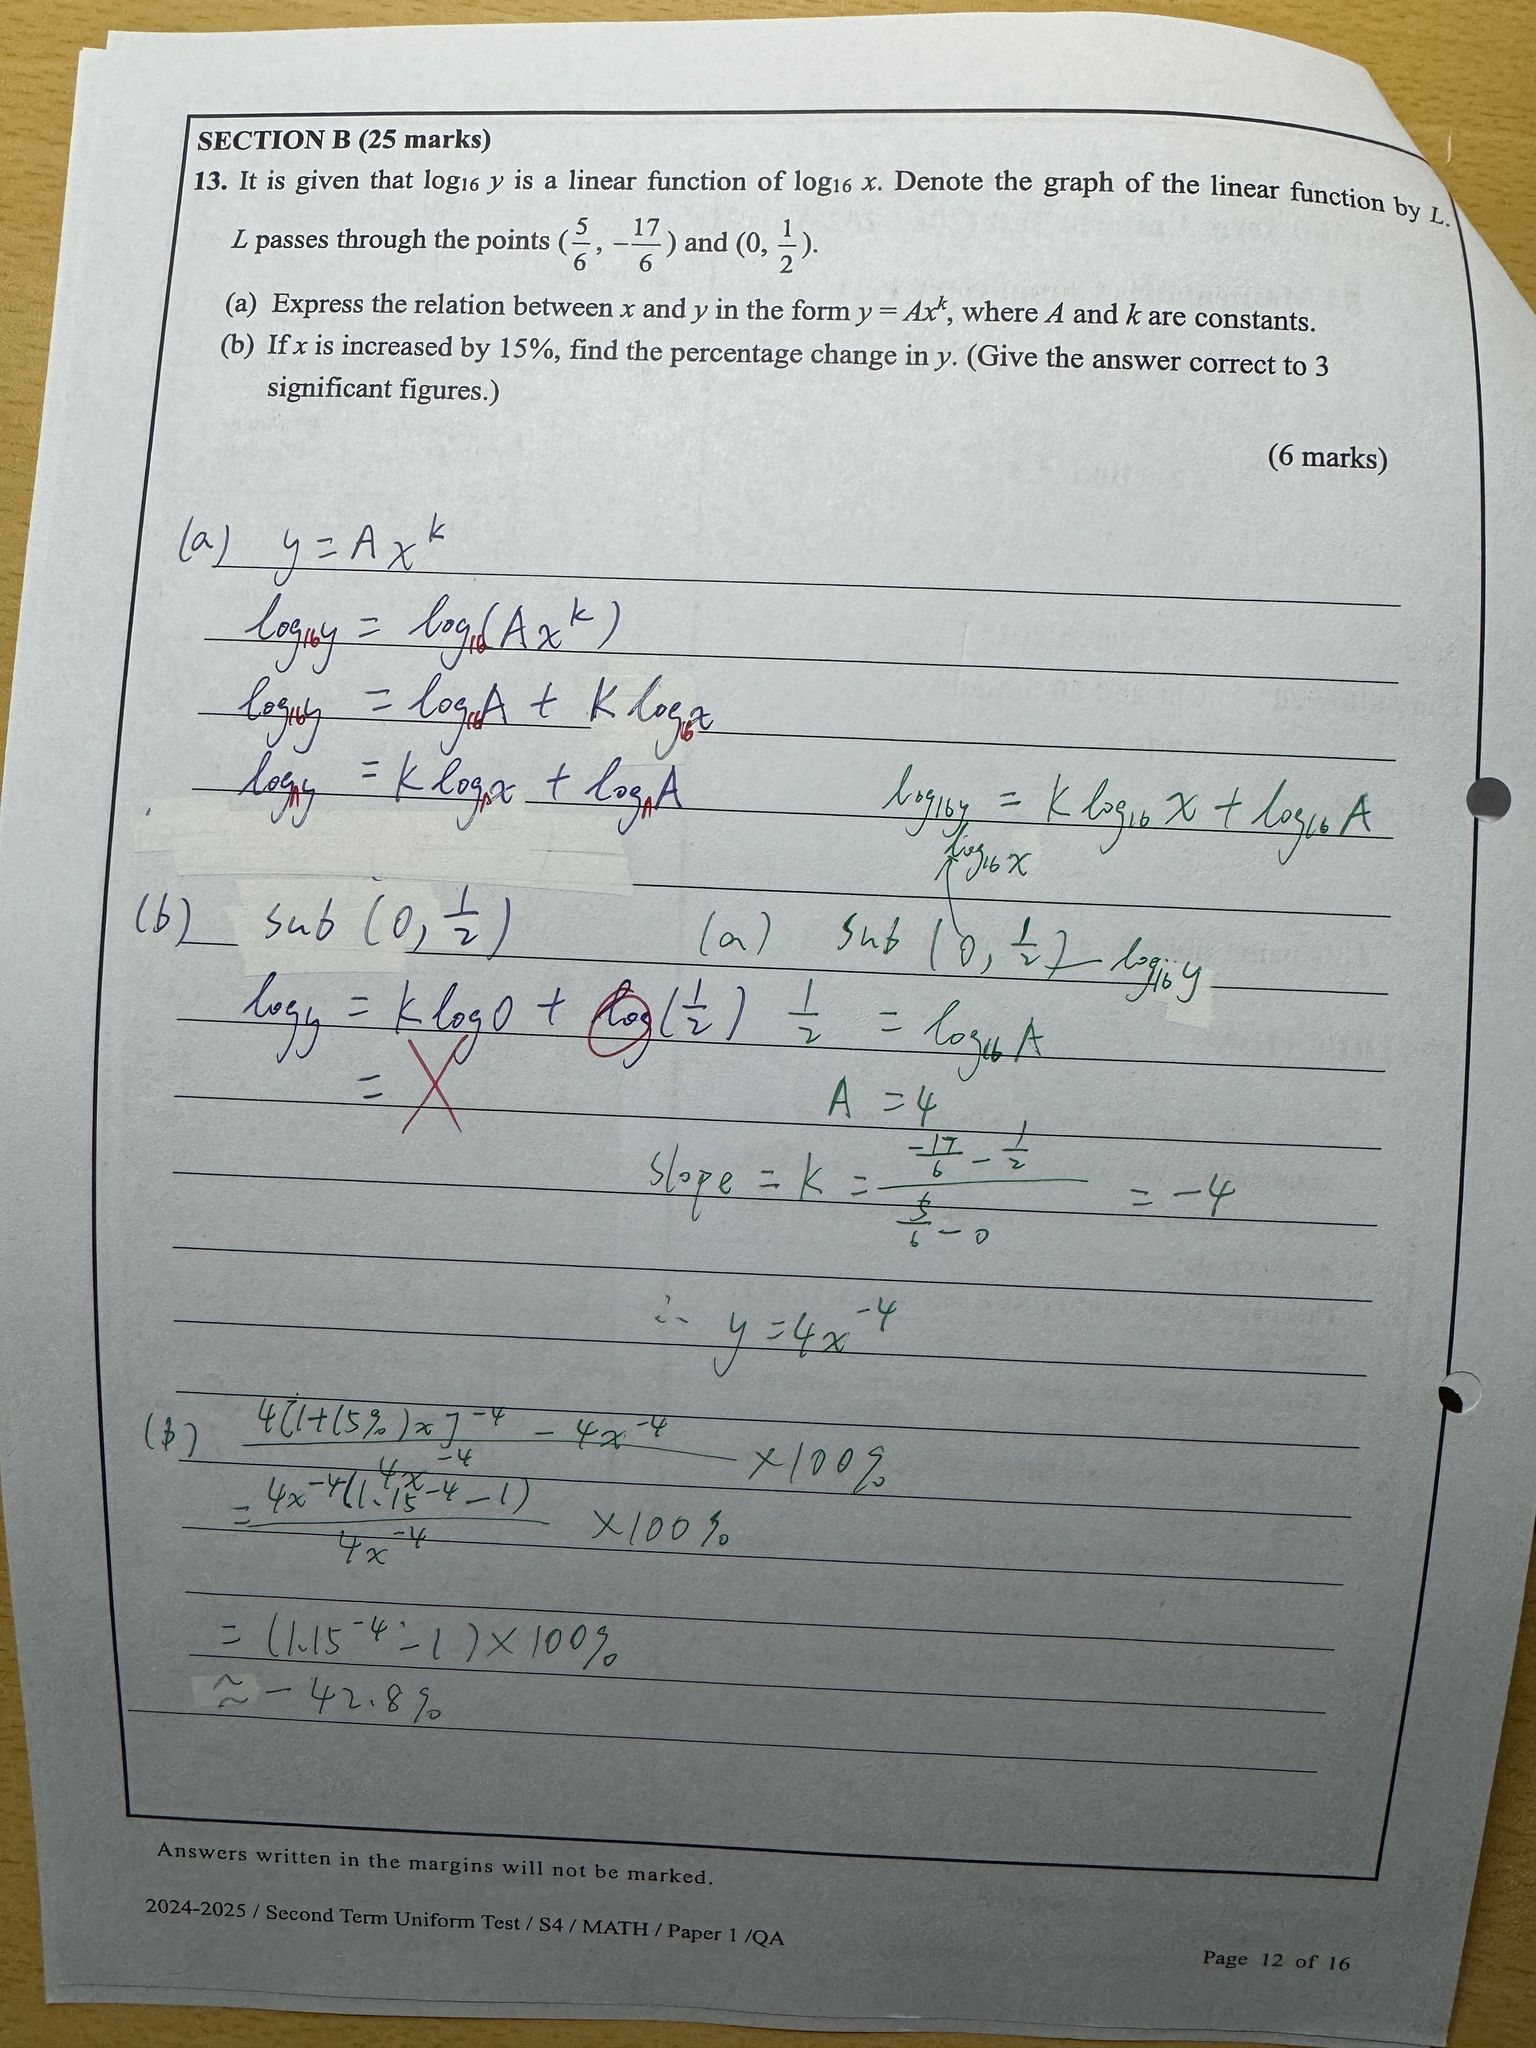 SECTION B (25 marks)
13. It is given that log₁₆ y is a linear function of log₁₆ x. Denote the graph of the linear function by L.
L passes through the points (5/6, −17/6) and (0, 1/2).
(a) Express the relation between x and y in the form y = Axᵏ, where A and k are constants.
(b) If x is increased by 15%, find the percentage change in y. (Give the answer correct to 3
significant figures.)
(6 marks)
(a) y = Axᵏ
log₁₆y = log₁₆(Axᵏ)
log₁₆y = log₁₆A + k log₁₆x
log y = k log x + log A
log₁₆y = k log₁₆ x + log₁₆ A
log₁₆ x
(b) sub (0, 1/2)
(a) sub (0, 1/2) log₁₆ y
log y = k log 0 + log(1/2)
1/2 = log₁₆ A
=
A = 4
slope = k = (−17/6 − 1/2)/(5/6 − 0) = −4
∴ y = 4x⁻⁴
(b) (4[1+15%)x]⁻⁴ − 4x⁻⁴)/(4x⁻⁴) × 100%
= (4x⁻⁴(1.15⁻⁴ − 1))/(4x⁻⁴) × 100%
= (1.15⁻⁴ − 1) × 100%
≈ −42.8%
Answers written in the margins will not be marked.
2024-2025 / Second Term Uniform Test / S4 / MATH / Paper 1 /QA
Page 12 of 16